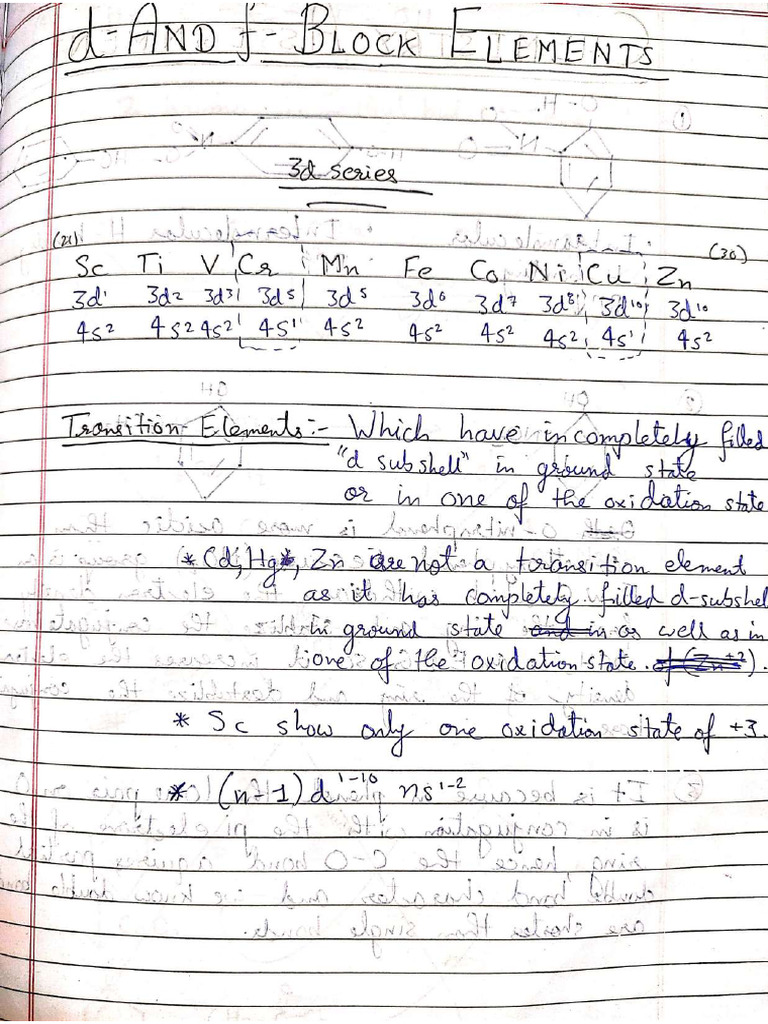 d-AND f-BLOCK ELEMENTS
3d series
(21) (30)
Sc Ti V Cr Mn Fe Co Ni Cu Zn
3d¹ 3d² 3d³ 3d⁵ 3d⁵ 3d⁶ 3d⁷ 3d⁸ 3d¹⁰ 3d¹⁰
4s² 4s² 4s² 4s¹ 4s² 4s² 4s² 4s² 4s¹ 4s²
Transition Elements:- Which have incompletely filled
"d subshell" in ground state
or in one of the oxidation state
*Cd, Hg, Zn are not a transition element
as it has completely filled d-subshel
in ground state or well as in
one of the oxidation state.
* Sc show only one oxidation state of +3.
* (n-1) d¹⁻¹⁰ ns¹⁻²